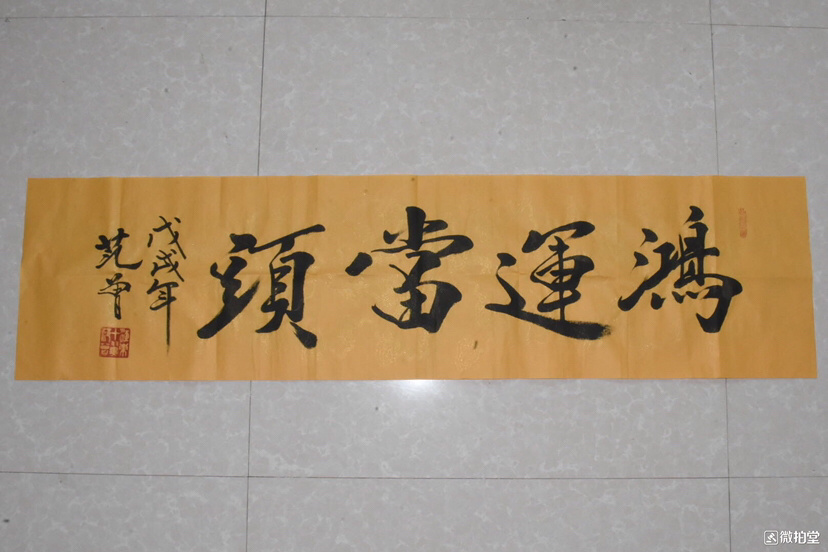 鴻運當頭
戊戌年
范曾
微拍堂